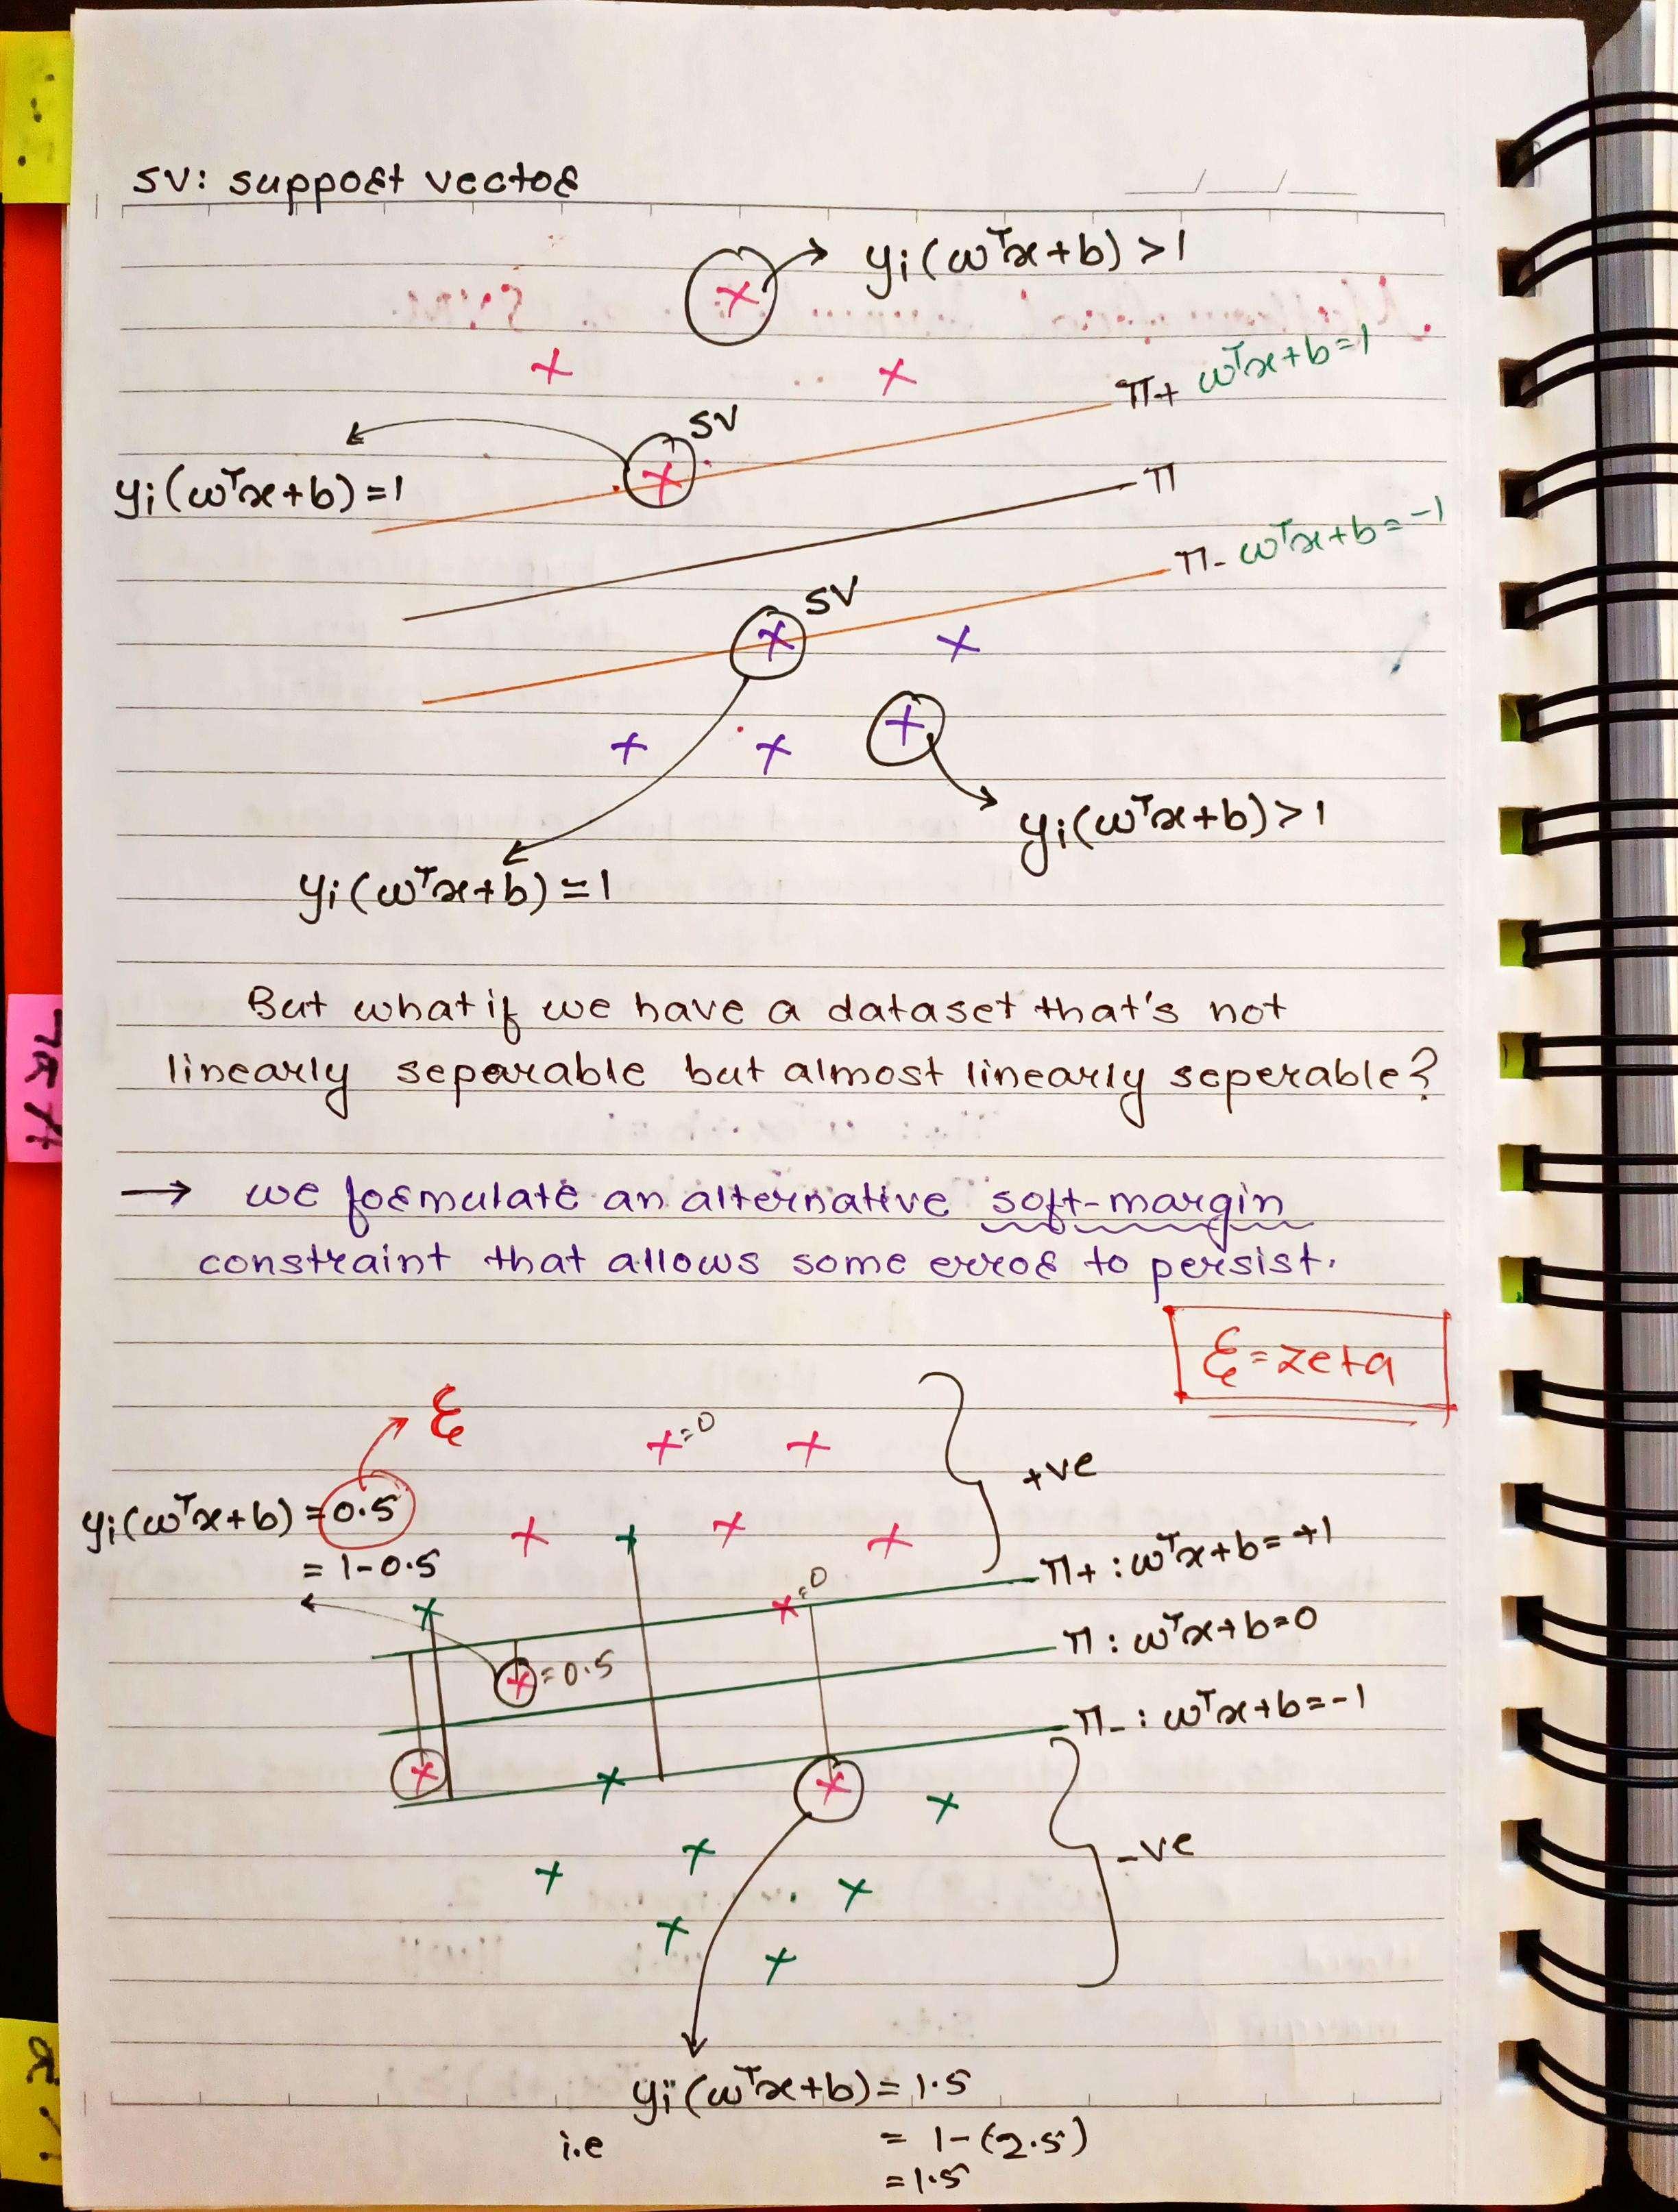 SV: support vector
yi(ωᵀx+b)>1
π+ ωᵀx+b=1
SV
yi(ωᵀx+b)=1
π
π- ωᵀx+b=-1
SV
yi(ωᵀx+b)>1
yi(ωᵀx+b)=1
But what if we have a dataset that's not
linearly separable but almost linearly seperable?
→ we formulate an alternative soft-margin
constraint that allows some error to persist.
ξ=zeta
ξ
=0
+ve
yi(ωᵀx+b)=0.5
=1-0.5
π+ : ωᵀx+b=+1
=0
π : ωᵀx+b=0
=0.5
π- : ωᵀx+b=-1
-ve
yi(ωᵀx+b)=1.5
i.e = 1-(2.5)
=1.5